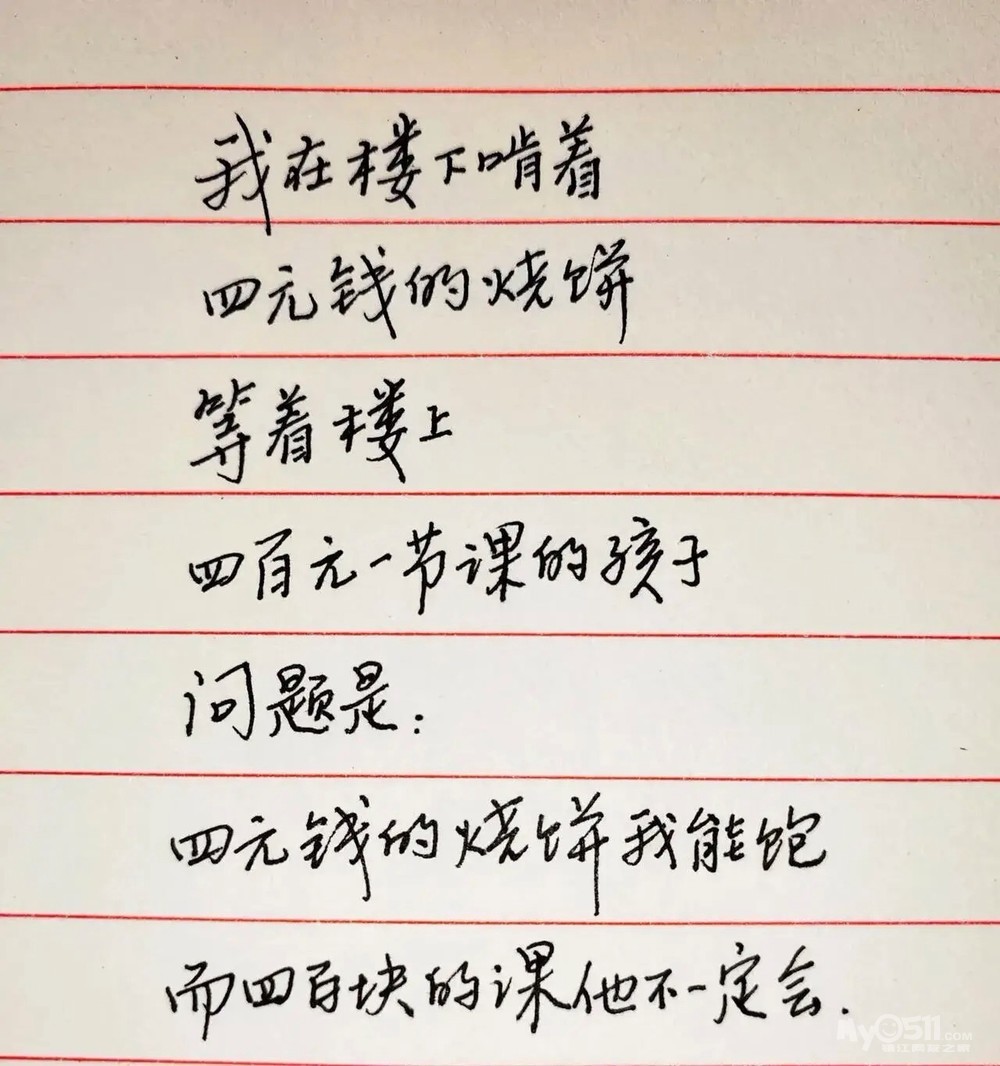 我在楼下啃着
四元钱的烧饼
等着楼上
四百元一节课的孩子
问题是：
四元钱的烧饼我能饱
而四百块的课他不一定会.
My0511.COM